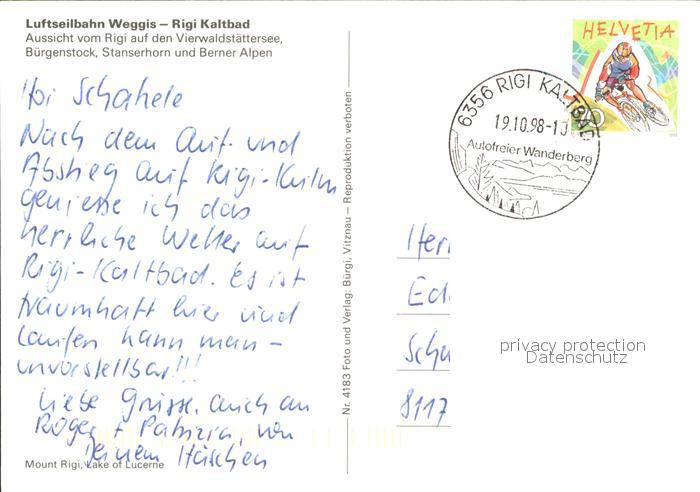 Luftseilbahn Weggis – Rigi Kaltbad
Aussicht vom Rigi auf den Vierwaldstättersee,
Bürgenstock, Stanserhorn und Berner Alpen
Hoi Schahele
Nach dem Auf- und
Abstieg auf Rigi-Kulm
geniesse ich das
herrliche Wetter auf
Rigi-Kaltbad. Es ist
traumhaft hier und
laufen kann man –
unvorstellbar!!!
Liebe Grüsse, auch an
Roger + Patrizia, von
Deinem Häschen
Mount Rigi, Lake of Lucerne
Nr. 4183 Foto und Verlag: Bürgi, Vitznau – Reproduktion verboten
HELVETIA
6356 RIGI KALTBAD
19.10.98-10
Autofreier Wanderberg
Herr
Ed
Schu
8117
privacy protection
Datenschutz